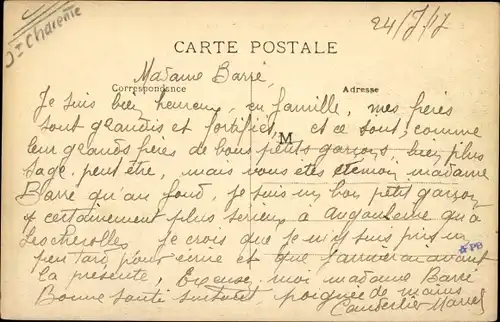 Dt Charente
24/7/17
CARTE POSTALE
Madame Barré
Correspondance Adresse
Je suis bien heureux, en famille, mes frères
sont grandis et fortifiés, et ce sont, comme
M
leur grands frères de bons petits garçons, bien plus
sage peut être, mais vous etes témoin madame
Barré qu'au fond, je suis un bon petit garçon
et certainement plus serieux a Angouleme qu'à
Les cherolles, je crois que je m'y suis pris un
peu tard pour écrire et que j'arriverai avant
la présente, Excusez, moi madame Barré
Bonne santé surtout, poignée de mains
Marcel